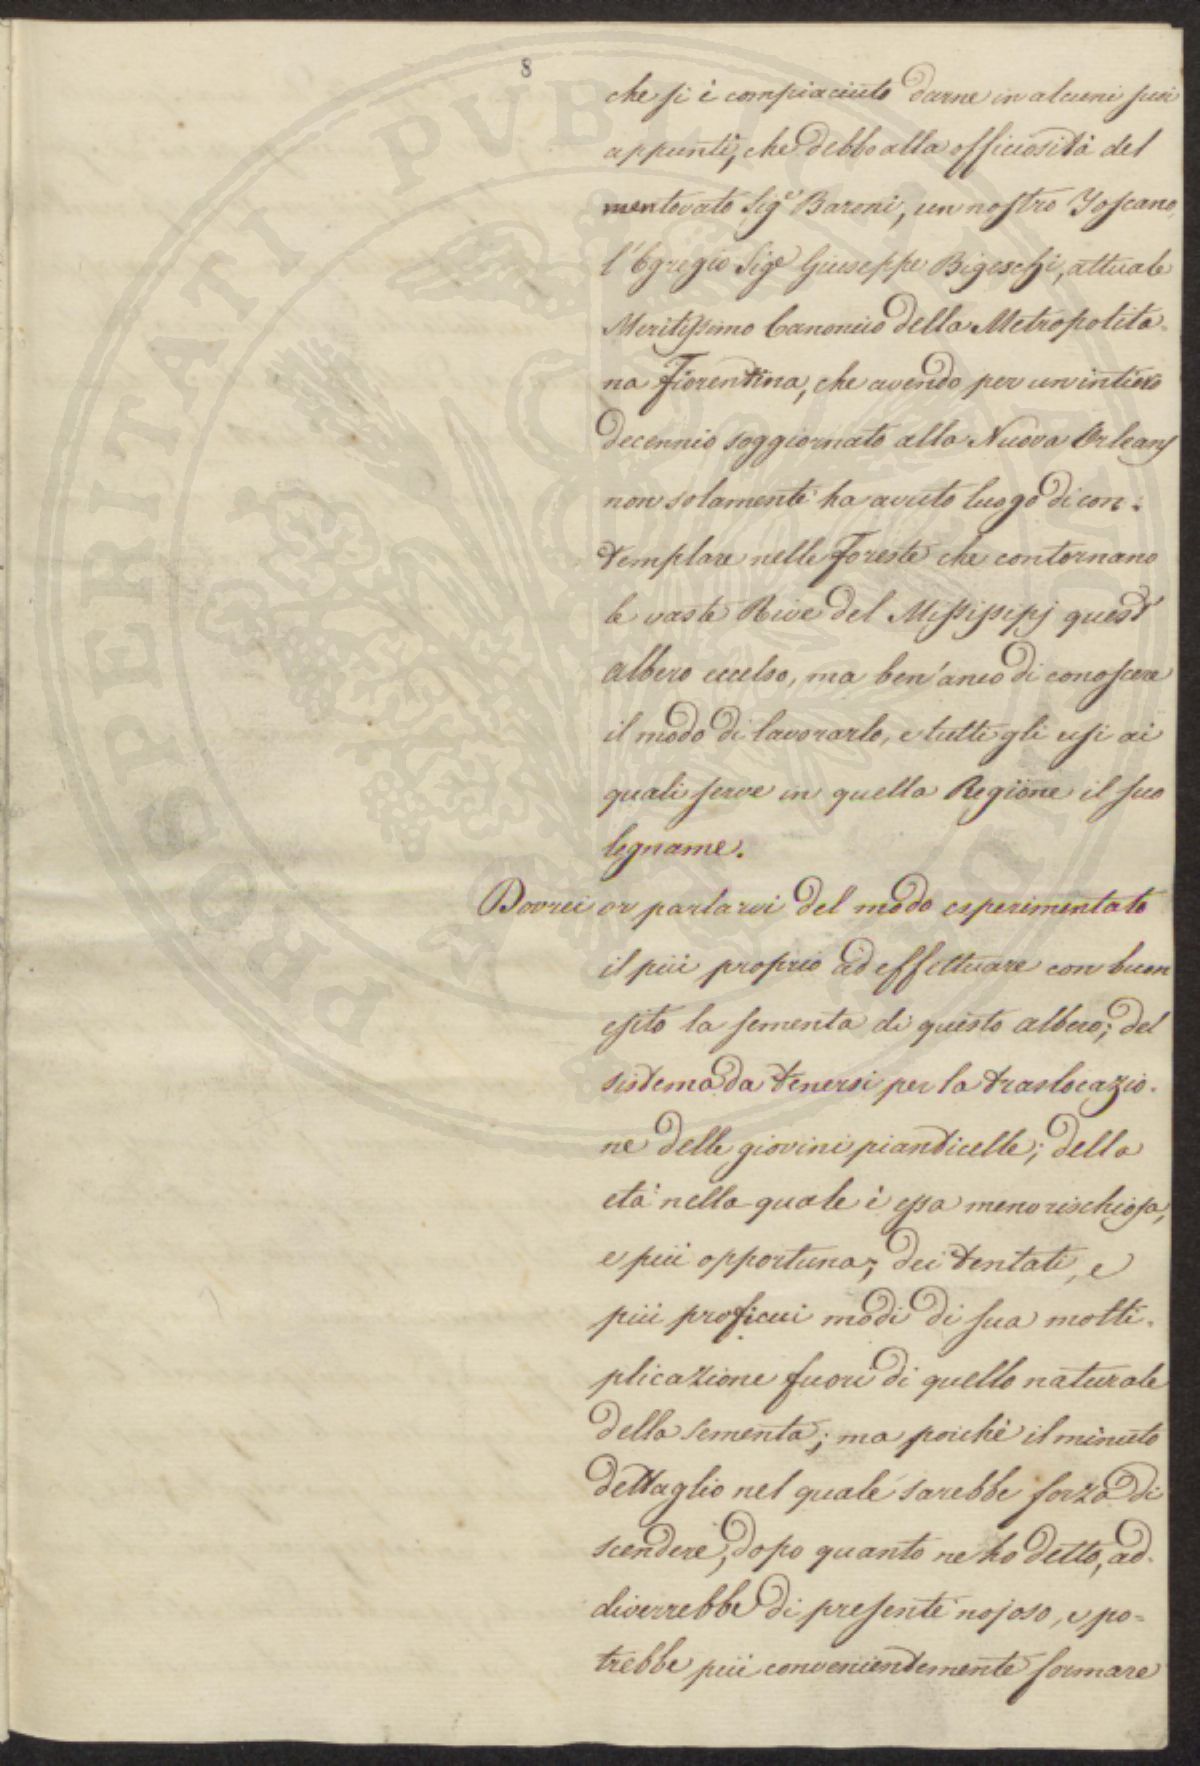 8
che si è compiaciuto darne in alcuni suoi
appunti, che debbo alla officiosità del
mentovato Sig.e Baroni, un nostro Toscano,
l'Egregio Sig.e Giuseppe Bigeschi, attuale
Meritissimo Canonico della Metropolita-
na Fiorentina, che avendo per un intiero
decennio soggiornato alla Nuova Orleans
non solamente ha avuto luogo di con-
templare nelle Foreste che contornano
le vaste Rive del Missipipj quest'
albero eccelso, ma ben'anco di conoscere
il modo di lavorarlo, e tutti gli usi ai
quali serve in quella Regione il suo
legname.
Dovrei or parlarvi del modo esperimentato
il più proprio ad effettuare con buon
esito la sementa di questo albero; del
sistema da tenersi per la traslocazio-
ne delle giovini pianticelle; della
età nella quale è essa meno rischiosa,
e più opportuna; dei tentati, e
più proficui modi di sua molti-
plicazione fuori di quello naturale
della sementa; ma poichè il minuto
dettaglio nel quale sarebbe forza di
scendere, dopo quanto ne ho detto, ad-
diverrebbe di presente nojoso, e po-
trebbe più convenientemente formare
PROSPERITATI PUBLICAE